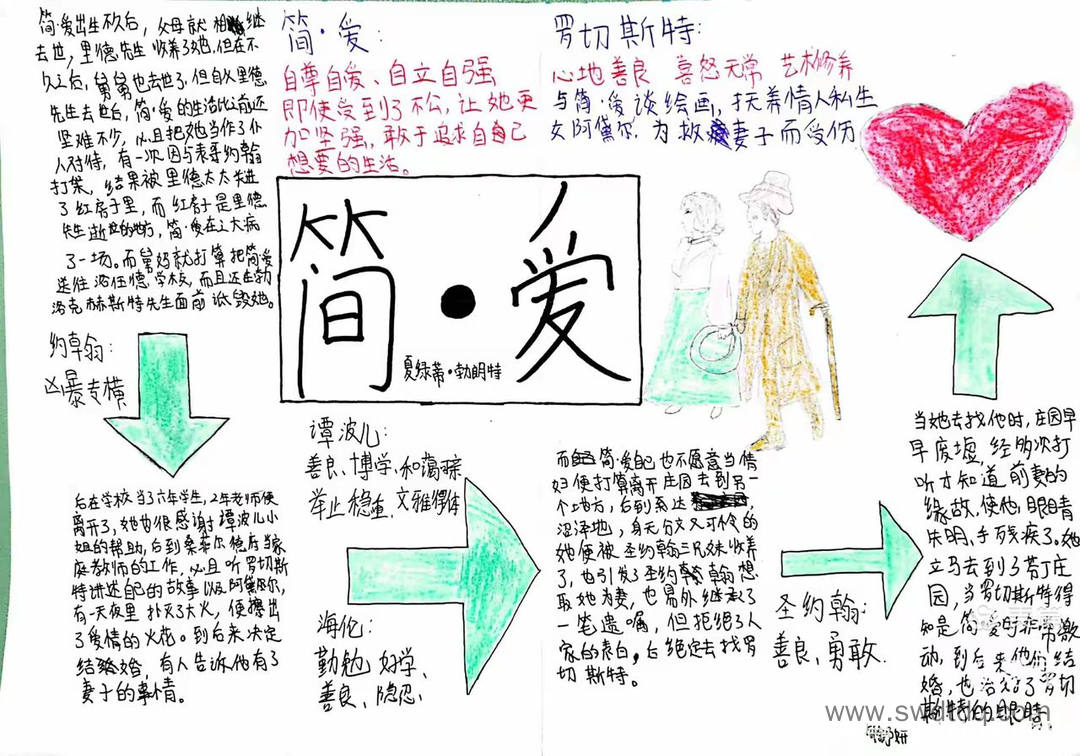 简·爱出生不久后，父母就相继
去世，里德先生收养了她，但在不
久之后，舅舅也去世了，但自从里德
先生去世后，简·爱的生活比以前还
坚难不少，必且把她当作了仆
人对待，有一次因与表哥约翰
打架，结果被里德太太关进
了红房子里，而红房子是里德
先生逝世的地方，简·爱在之大病
了一场。而舅妈就打算把简·爱
送往洛任德学校，而且还在勃
洛克赫斯特先生面前诋毁她。
约翰：
凶暴专横
简·爱：
自尊自爱、自立自强，
即使受到了不公，让她更
加坚强，敢于追求自自己
想要的生活。
罗切斯特：
心地善良 喜怒无常 艺术修养
与简·爱谈绘画，扶养情人私生
女阿黛尔，为救妻子而受伤
简·爱
夏绿蒂·勃朗特
后在学校当了六年学生，2年老师便
离开了，她也很感谢谭波儿小
姐的帮助，后到桑菲尔德府当家
庭教师的工作，必且听罗切斯
特讲述自己的故事以及阿黛尔，
有一天夜里扑灭了大火，便擦出
了爱情的火花。到后来决定
结婚，有人告诉他有了
妻子的事情。
谭波儿：
善良、博学、和蔼
举止稳重、文雅得体
海伦：
勤勉 好学、
善良、隐忍、
而简·爱自己也不愿意当情
妇便打算离开庄园去到另一
个地方，后到素达
沼泽地，身无分文又可怜的
她便被圣约翰三兄妹收养
了，也引发了圣约翰想
取她为妻，也易外继承了
一笔遗嘱，但拒绝了人
家的表白，后绝定去找罗
切斯特。
圣约翰：
善良、勇敢.
当她去找他时，庄园早
早废墟，经多次打
听才知道前妻的
缘故，使他，眼睛
失明，手残疾了。她
立马去到了芬丁庄
园，当罗切斯特得
知是简·爱时非常激
动，到后来他们结
婚，也治好了罗切
斯特的眼睛。
www.swdtdq.com.cn